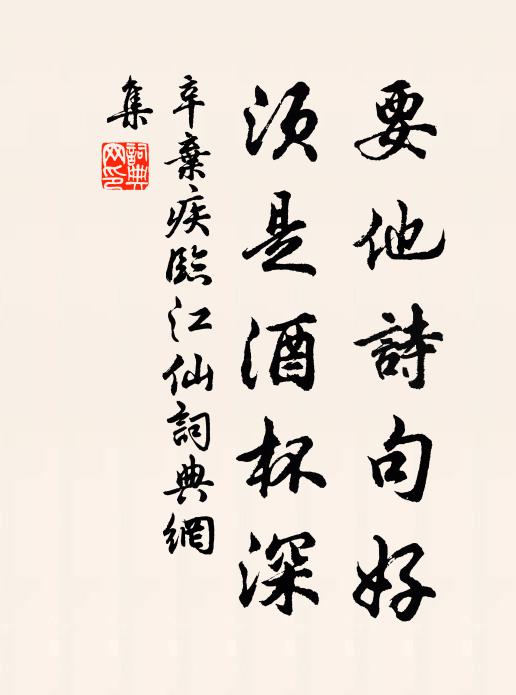 要他詩句好
須是酒杯深
辛棄疾臨江仙詞典網
集
詞典
网印